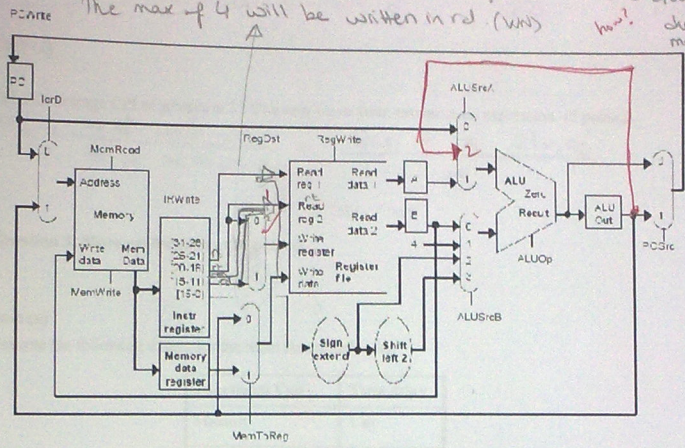 PCWrite
The max of 4 will be written in rd. (WN)
how?
PC
IorD
ALUSrcA
0
2
1
RegDst
RegWrite
MemRead
Address
Memory
Write data
Mem Data
MemWrite
IRWrite
[31-26]
[25-21]
[20-16]
[15-11]
[15-0]
Instr register
Memory data register
0
1
MemToReg
Read reg 1
Read reg 2
rt
Write register
Write data
Read data 1
Read data 2
Register file
A
B
4
0
1
2
3
ALUSrcB
Sign extend
Shift left 2
ALU
Zero
Result
ALUOp
ALU Out
PCSrc